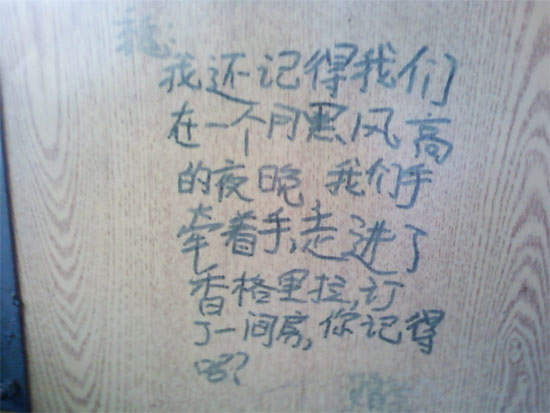 我还记得我们
在一个月黑风高
的夜晚 我们手
牵着手,走进了
香格里拉,订
了一间房,你记得
吗?